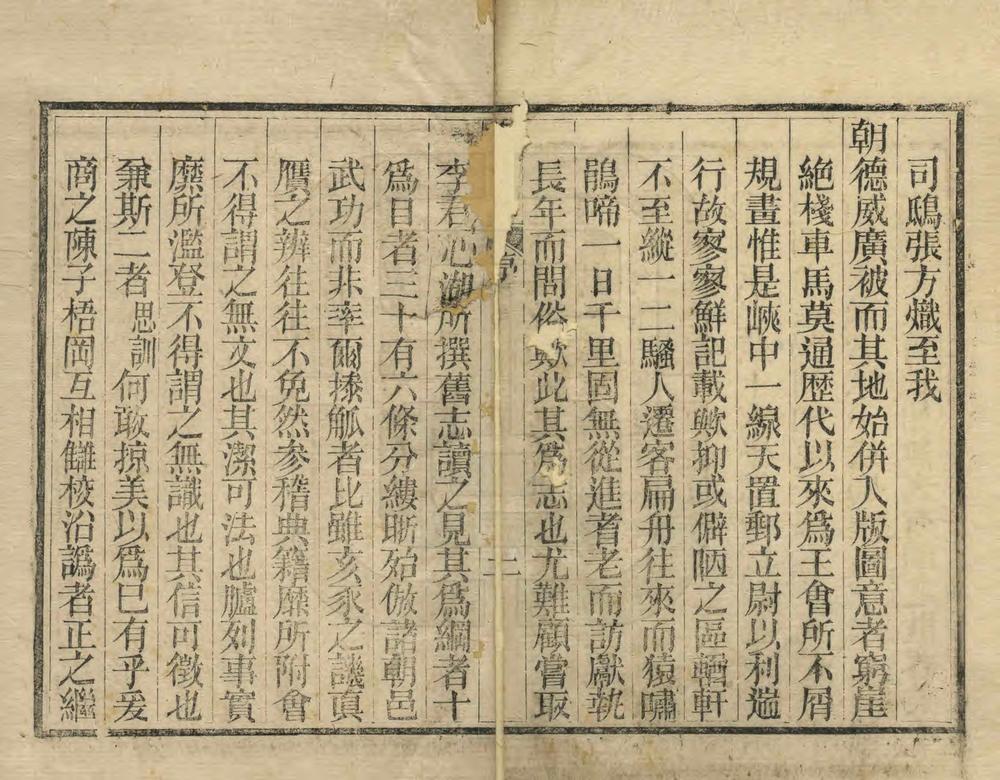 司鴟張方熾至我
朝德威廣被而其地始併入版圖意者窮崖
絕棧車馬莫通歷代以來爲王會所不屑
規畫惟是峽中一線天置郵立尉以利遄
行故寥寥鮮記載歟抑或僻陋之區輶軒
不至縱一二騷人遷客扁舟往來而猿嘯
鵑啼一日千里固無從進者老而訪獻執
長年而問俗歟此其爲志也尤難顧嘗取
序
二
李君 湖所撰舊志讀之見其爲綱者十
爲目者三十有六條分縷晰殆倣諸朝邑
武功而非率爾操觚者比雖亥豕之譏眞
贋之辨往往不免然參稽典籍靡所附會
不得謂之無文也其潔可法也臚列事實
靡所濫登不得謂之無識也其信可徵也
兼斯二者思訓何敢掠美以爲已有乎爰
商之陳子梧岡互相讎校沿譌者正之繼